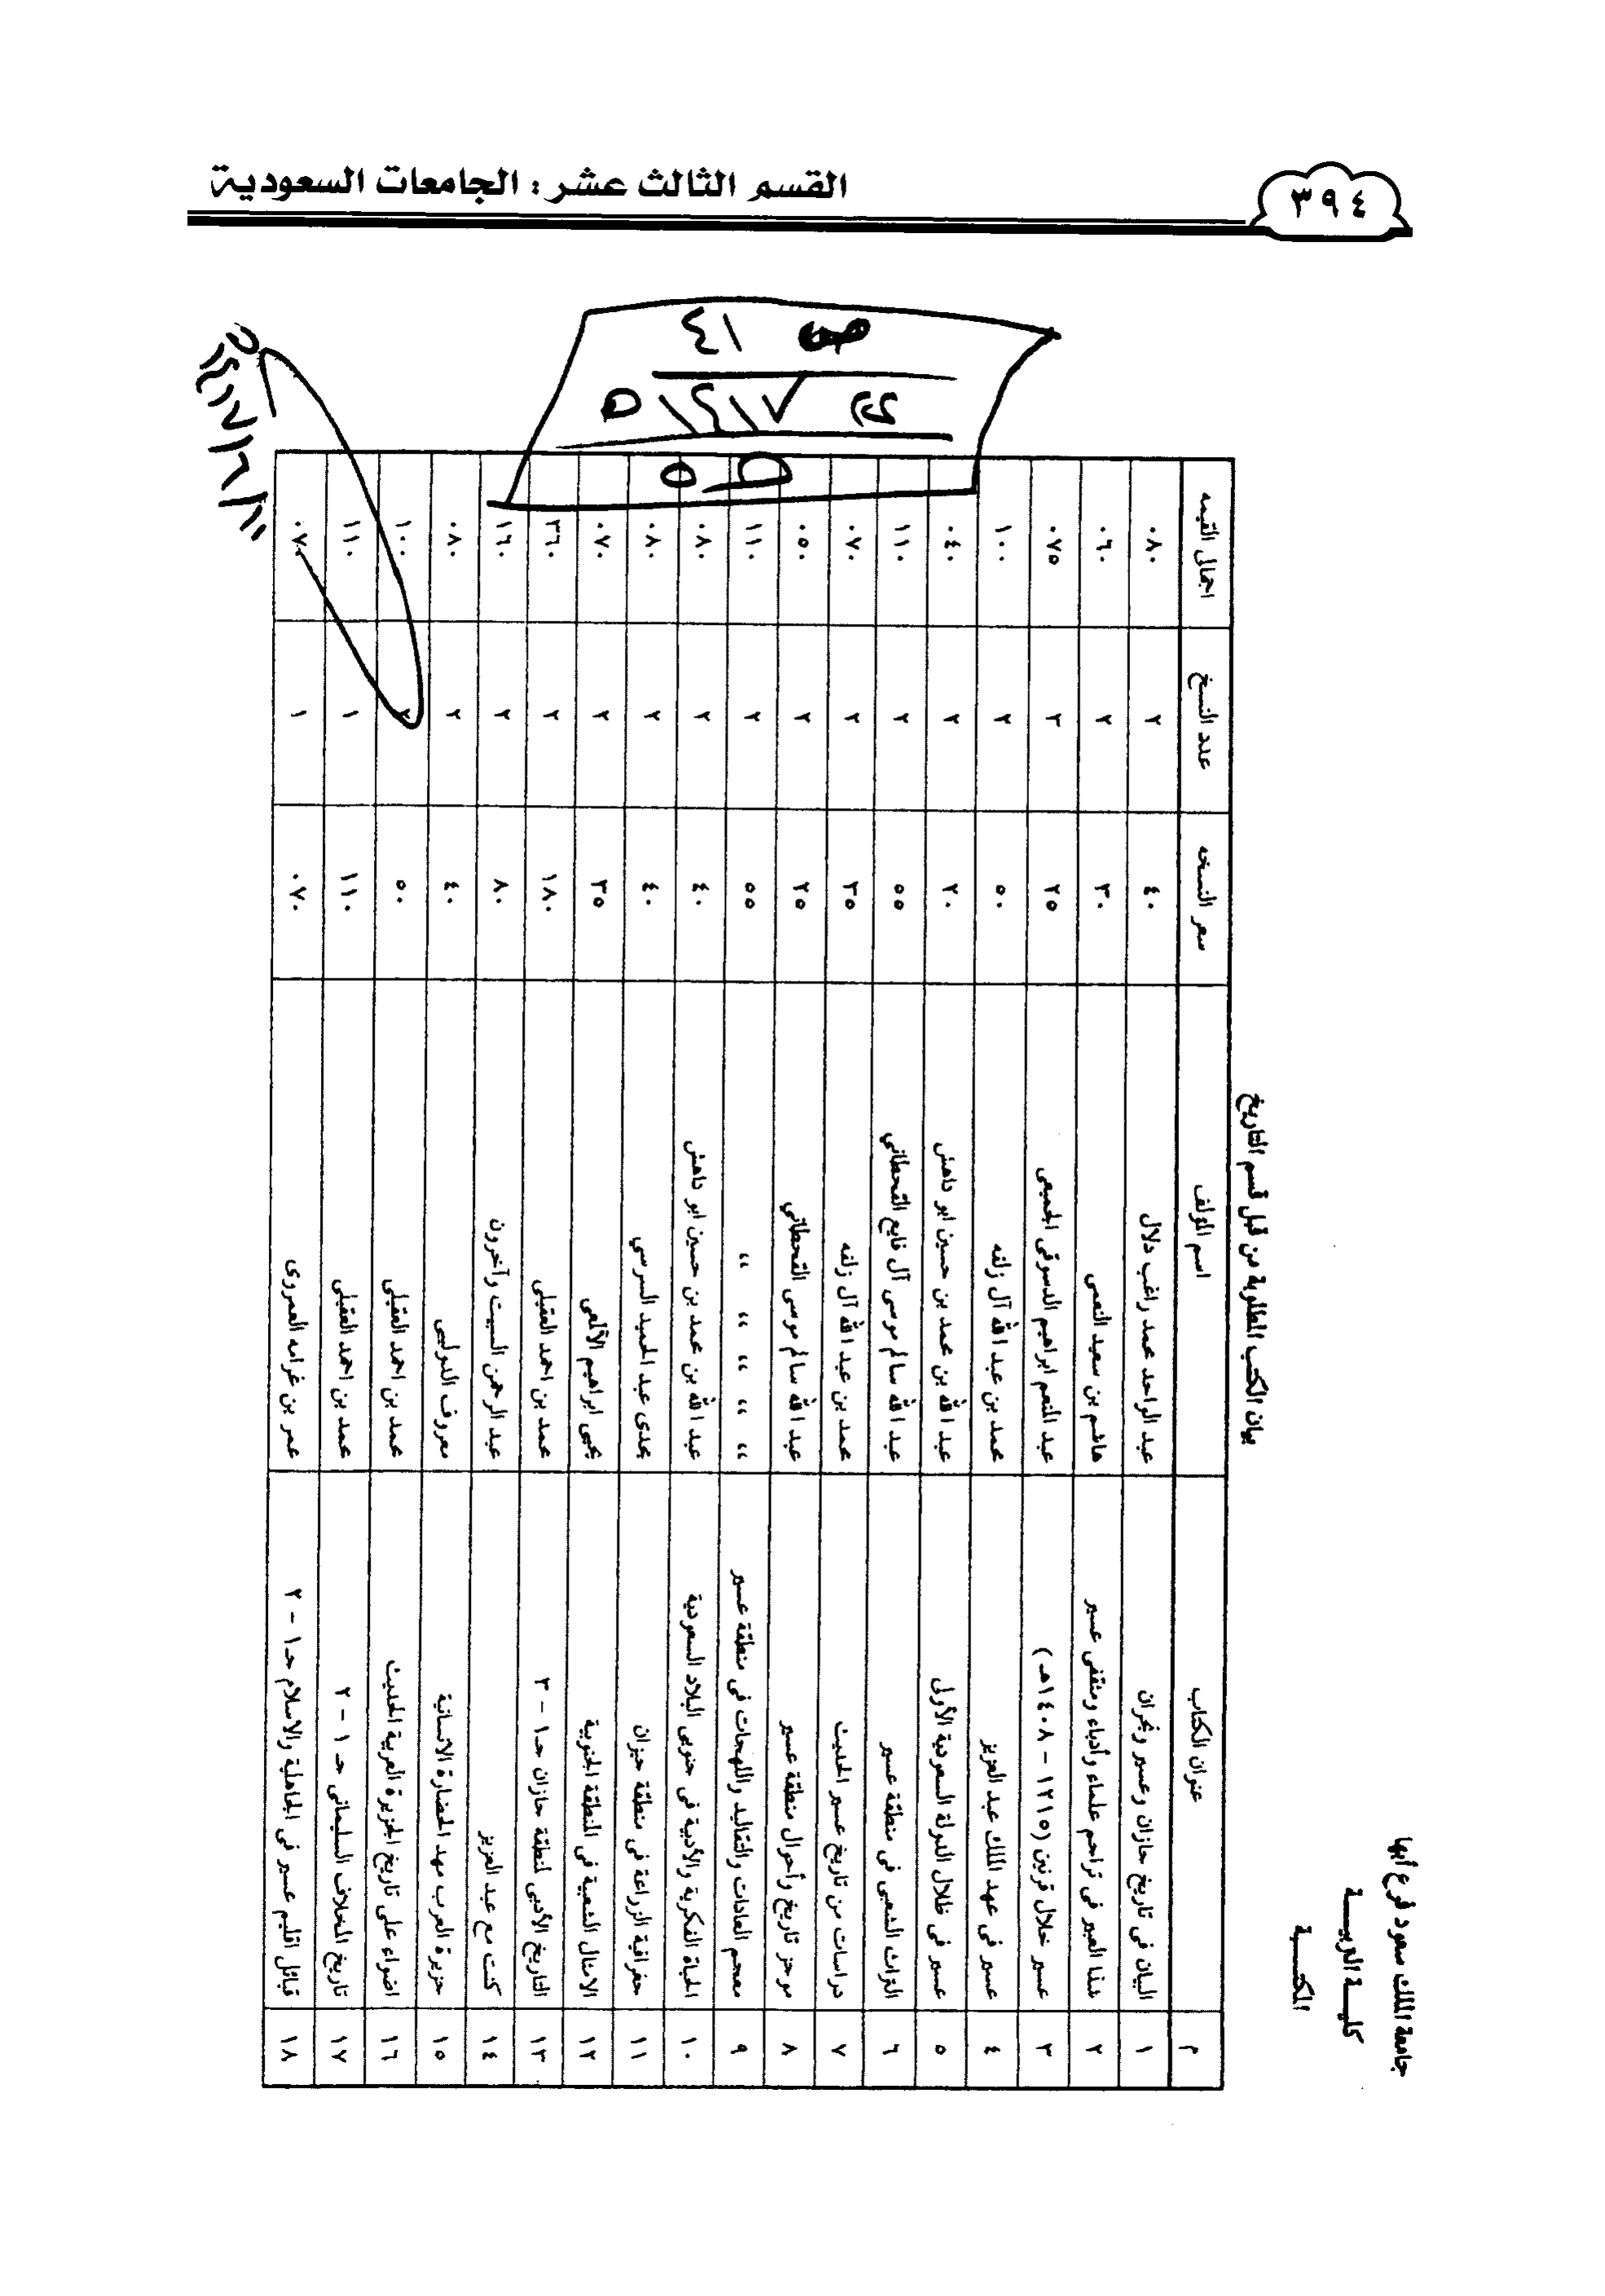 ٣٩٤
القسم الثالث عشر: الجامعات السعودية
ص ٤١
١٤١٧ ه
جامعة الملك سعود فرع أبها
كليــة التربيــــة
المكتبــــة
بيان الكتب المطلوبة من قبل قسم التاريخ
م عنوان الكتاب اسم المؤلف سعر النسخه عدد النسخ اجمالى القيمه
١ البيان فى تاريخ جازان وعسير ونجران عبد الواحد محمد راغب دلال ٤٠ ٢ ٠٨٠
٢ شذا العبير فى تراجم علماء وأدباء ومثقفى عسير هاشم بن سعيد النعمى ٣٠ ٢ ٠٦٠
٣ عسير خلال قرنين (١٢١٥ – ١٤٠٨هـ) عبد المنعم ابراهيم الدسوقى الجميعى ٢٥ ٣ ٠٧٥
٤ عسير فى عهد الملك عبد العزيز محمد بن عبد الله آل زلفه ٥٠ ٢ ١٠٠
٥ عسير فى ظلال الدولة السعودية الأولى عبد الله بن محمد بن حسين ابو داهش ٢٠ ٢ ٠٤٠
٦ التراث الشعبى فى منطقة عسير عبد الله سالم موسى آل فايع القحطاني ٥٥ ٢ ١١٠
٧ دراسات من تاريخ عسير الحديث محمد بن عبد الله آل زلفه ٣٥ ٢ ٠٧٠
٨ موجز تاريخ وأحوال منطقة عسير عبد الله سالم موسى القحطاني ٢٥ ٢ ٠٥٠
٩ معجم العادات والتقاليد واللهجات فى منطقة عسير ،، ،، ،، ،، ٥٥ ٢ ١١٠
١٠ الحياة الفكرية والأدبية فى جنوبى البلاد السعودية عبد الله بن محمد بن حسين ابو داهش ٤٠ ٢ ٠٨٠
١١ جغرافية الزراعة فى منطقة جيزان مجدى عبد الحميد السرسي ٤٠ ٢ ٠٨٠
١٢ الامثال الشعبية فى المنطقة الجنوبية يحيى ابراهيم الألمعى ٣٥ ٢ ٠٧٠
١٣ التاريخ الأدبى لمنطقة جازان حـ١ - ٣ محمد بن احمد العقيلى ١٨٠ ٢ ٣٦٠
١٤ كنت مع عبد العزيز عبد الرحمن السبيت وآخرون ٨٠ ٢ ١٦٠
١٥ جزيرة العرب مهد الحضارة الانسانية معروف الدوليبى ٤٠ ٢ ٠٨٠
١٦ اضواء على تاريخ الجزيرة العربية الحديث محمد بن احمد العقيلى ٥٠ ٢ ١٠٠
١٧ تاريخ المخلاف السليمانى حـ ١ - ٢ محمد بن احمد العقيلى ١١٠ ١ ١١٠
١٨ قبائل اقليم عسير فى الجاهلية والاسلام حـ١ - ٢ عمر بن غرامه العمروى ٠٧٠ ١ ٠٧٠